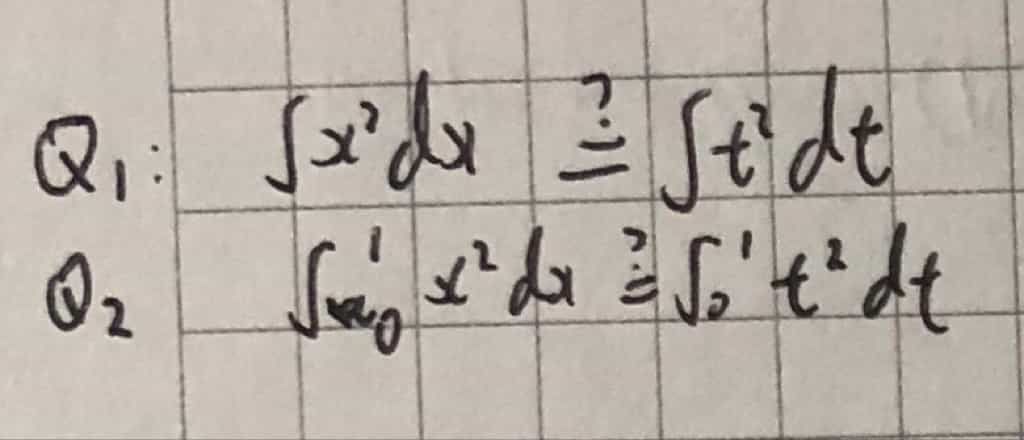 Q₁: ∫x²dx ≟ ∫t²dt
Q₂ ∫₀¹ x²dx ≟ ∫₀¹ t²dt